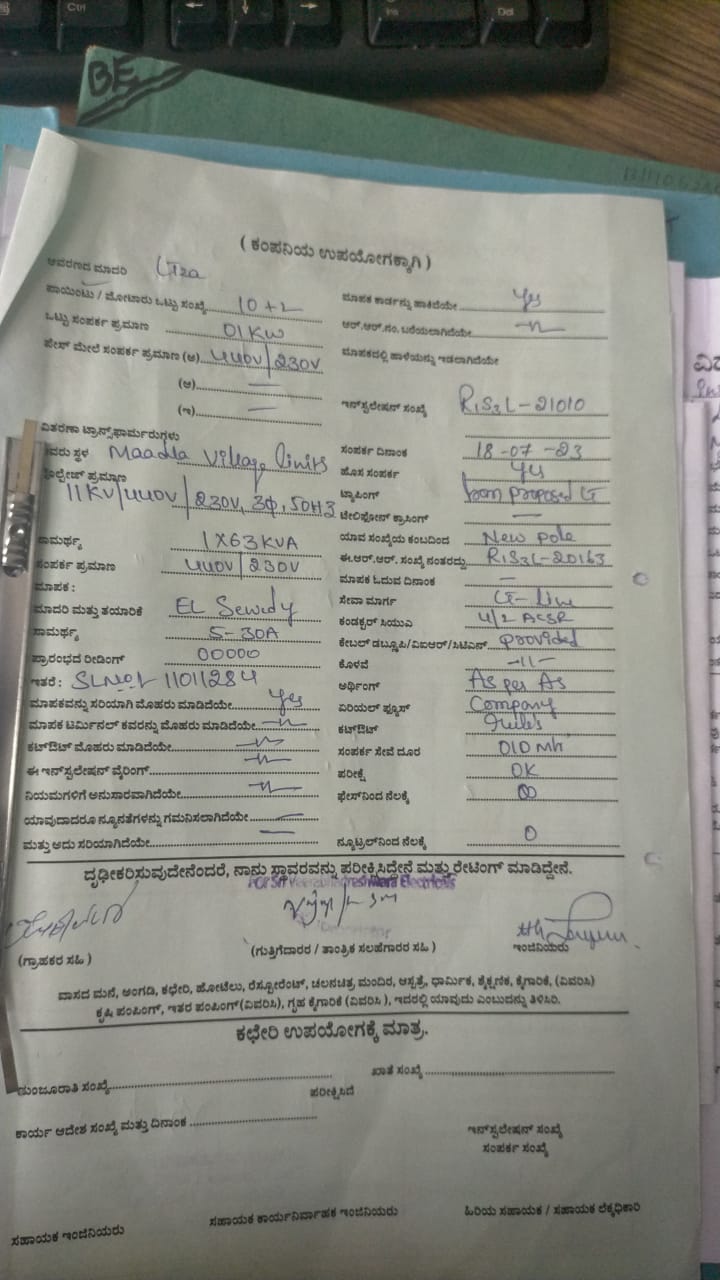 Ctrl
Del
BE
( ಕಂಪನಿಯ ಉಪಯೋಗಕ್ಕಾಗಿ )
ಆವರಣದ ಮಾದರಿ
ಪಾಯಿಂಟು / ಮೋಟಾರು ಒಟ್ಟು ಸಂಖ್ಯೆ 10+2 ಮಾಪಕ ಕಾರ್ಡನ್ನು ಹಾಕಿದೆಯೇ Yes
ಒಟ್ಟು ಸಂಪರ್ಕ ಪ್ರಮಾಣ 01KW ಆರ್.ಆರ್.ನಂ. ಬರೆಯಲಾಗಿದೆಯೇ -"-
ಪೇಸ್ ಮೇಲೆ ಸಂಪರ್ಕ ಪ್ರಮಾಣ (ಅ) 440V/230V ಮಾಪಕದಲ್ಲಿ ಹಾಳೆಯನ್ನು ಇಡಲಾಗಿದೆಯೇ
(ಆ) —
(ಇ) — ಇನ್‌ಸ್ಟಲೇಷನ್ ಸಂಖ್ಯೆ R1S3L-21010
ವಿತರಣಾ ಟ್ರಾನ್ಸ್‌ಫಾರ್ಮರುಗಳು
ಸಂಪರ್ಕ ದಿನಾಂಕ 18-07-23
Maadla Village limits ಹೊಸ ಸಂಪರ್ಕ Yes
ಪ್ರಮಾಣ 11KV/440V/230V, 3Φ, 50HZ ಟ್ಯಾಪಿಂಗ್ from proposed
ಟೆಲಿಫೋನ್ ಕ್ರಾಸಿಂಗ್ —
ಸಾಮರ್ಥ್ಯ 1X63KVA ಯಾವ ಸಂಖ್ಯೆಯ ಕಂಬದಿಂದ New pole
ಸಂಪರ್ಕ ಪ್ರಮಾಣ 440V/230V ಈ.ಆರ್.ಆರ್. ಸಂಖ್ಯೆ ನಂತರದ್ದು R1S3L-20163
ಮಾಪಕ : ಮಾಪಕ ಓದುವ ದಿನಾಂಕ —
ಮಾದರಿ ಮತ್ತು ತಯಾರಿಕೆ EL Sewedy ಸೇವಾ ಮಾರ್ಗ
ಸಾಮರ್ಥ್ಯ 5-30A ಕಂಡಕ್ಟರ್ ಸಿಯುಎ 4/2 ACSR
ಪ್ರಾರಂಭದ ರೀಡಿಂಗ್ 00000 ಕೇಬಲ್ ಡಬ್ಲ್ಯೂಪಿ/ವಿಐಆರ್/ಸಿಟಿಎಸ್ provided
ಇತರೆ : SLNo:- 11011284 ಕೊಳವೆ -11-
ಮಾಪಕವನ್ನು ಸರಿಯಾಗಿ ಮೊಹರು ಮಾಡಿದೆಯೇ Yes ಅರ್ಥಿಂಗ್ As per As
ಮಾಪಕ ಟರ್ಮಿನಲ್ ಕವರನ್ನು ಮೊಹರು ಮಾಡಿದೆಯೇ -"- ಏರಿಯಲ್ ಫ್ಯೂಸ್ Company
ಕಟ್‌ಔಟ್ ಮೊಹರು ಮಾಡಿದೆಯೇ -"- ಕಟ್‌ಔಟ್ rules
ಈ ಇನ್‌ಸ್ಟಲೇಷನ್ ವೈರಿಂಗ್ -"- ಸಂಪರ್ಕ ಸೇವೆ ದೂರ 010 Mh
ನಿಯಮಗಳಿಗೆ ಅನುಸಾರವಾಗಿದೆಯೇ -"- ಪರೀಕ್ಷೆ OK
ಯಾವುದಾದರೂ ನ್ಯೂನತೆಗಳನ್ನು ಗಮನಿಸಲಾಗಿದೆಯೇ — ಫೇಸ್‌ನಿಂದ ನೆಲಕ್ಕೆ ∞
ಮತ್ತು ಅದು ಸರಿಯಾಗಿದೆಯೇ — ನ್ಯೂಟ್ರಲ್‌ನಿಂದ ನೆಲಕ್ಕೆ 0
ದೃಢೀಕರಿಸುವುದೇನೆಂದರೆ, ನಾನು ಸ್ಥಾವರವನ್ನು ಪರೀಕ್ಷಿಸಿದ್ದೇನೆ ಮತ್ತು ರೇಟಿಂಗ್ ಮಾಡಿದ್ದೇನೆ.
For Sri Electricals
(ಗ್ರಾಹಕರ ಸಹಿ ) (ಗುತ್ತಿಗೆದಾರರ / ತಾಂತ್ರಿಕ ಸಲಹೆಗಾರರ ಸಹಿ ) ಇಂಜಿನಿಯರು
ವಾಸದ ಮನೆ, ಅಂಗಡಿ, ಕಛೇರಿ, ಹೋಟೆಲು, ರೆಸ್ಟೋರೆಂಟ್, ಚಲನಚಿತ್ರ ಮಂದಿರ, ಆಸ್ಪತ್ರೆ, ಧಾರ್ಮಿಕ, ಶೈಕ್ಷಣಿಕ, ಕೈಗಾರಿಕೆ, (ವಿವರಿಸಿ)
ಕೃಷಿ ಪಂಪಿಂಗ್, ಇತರ ಪಂಪಿಂಗ್(ವಿವರಿಸಿ), ಗೃಹ ಕೈಗಾರಿಕೆ (ವಿವರಿಸಿ ), ಇದರಲ್ಲಿ ಯಾವುದು ಎಂಬುದನ್ನು ತಿಳಿಸಿರಿ.
ಕಛೇರಿ ಉಪಯೋಗಕ್ಕೆ ಮಾತ್ರ.
ಮಂಜೂರಾತಿ ಸಂಖ್ಯೆ ಖಾತೆ ಸಂಖ್ಯೆ
ಪರೀಕ್ಷಿಸಿದೆ
ಕಾರ್ಯ ಆದೇಶ ಸಂಖ್ಯೆ ಮತ್ತು ದಿನಾಂಕ ಇನ್‌ಸ್ಟಲೇಷನ್ ಸಂಖ್ಯೆ
ಸಂಪರ್ಕ ಸಂಖ್ಯೆ
ಸಹಾಯಕ ಇಂಜಿನಿಯರು ಸಹಾಯಕ ಕಾರ್ಯನಿರ್ವಾಹಕ ಇಂಜಿನಿಯರು ಹಿರಿಯ ಸಹಾಯಕ / ಸಹಾಯಕ ಲೆಕ್ಕಾಧಿಕಾರಿ